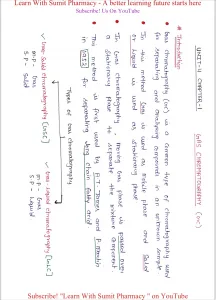 Learn With Sumit Pharmacy - A better learning future starts here
Subscribe! Us On YouTube
UNIT-4 CHAPTER-1
GAS CHROMATOGRAPHY (GC)
* Introduction
• Gas chromatography (GC) is a common type of chromatography used
for separating and analyzing compounds in an unknown sample
• In this method Gas is used as mobile phase and Solid
or liquid is used as stationary phase.
• In Gas chromatography, moving Gas phase is passed over
a stationary phase to separate the mixture component.
• This method was first used by A.T James and A.J.P Martin
in 1952 for separating long chain fatty acid
Types of Gas chromatography
→ Gas Solid chromatography [GSC]
m.P - Gas
S.P - Solid
→ Gas liquid chromatography [GLC]
m.P - Gas
S.P - Liquid
Subscribe! "Learn With Sumit Pharmacy " on YouTube